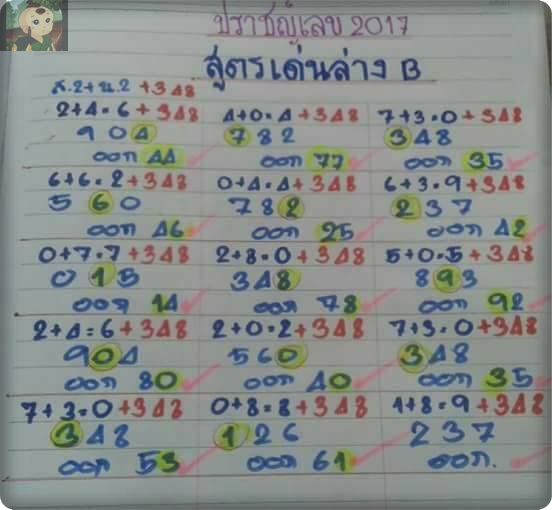 ปราชญ์เลข 2017
สูตรเด่นล่าง B
ส.2+น.2 +348
2+4=6+348 4+0=4+348 7+3=0+348
904 782 348
ออก 44 ออก 77 ออก 35
6+6=2+348 0+4=4+348 6+3=9+348
560 782 237
ออก 46 ออก 25 ออก 42
0+7=7+348 2+8=0+348 5+0=5+348
015 348 893
ออก 14 ออก 78 ออก 92
2+4=6+348 2+0=2+348 7+3=0+348
904 560 348
ออก 80 ออก 40 ออก 35
7+3=0+348 0+8=8+348 1+8=9+348
348 126 237
ออก 53 ออก 61 ออก.